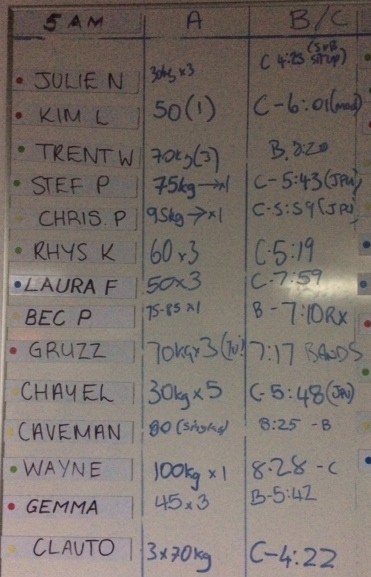 5 AM A B/C
JULIE N 30kg x3 C 4:25 (SUB SITUP)
KIM L 50(1) C-6:01(mod)
TRENT W 70kg(3) B.8:20
STEF P 75kg→x1 C-5:43(JPU)
CHRIS.P 95kg→x1 C-5:59(JPU)
RHYS K 60x3 C-5:19
LAURA F 50x3 C-7:59
BEC P 75-85 x1 B-7:10RX
GRUZZ 70kgx3 7:17 BANDS
CHAYEL 30kg x5 C-5:48(JPU)
CAVEMAN 80 (singles) 8:25 -B
WAYNE 100kg x1 8.28 -C
GEMMA 45x3 B-5:42
CLAUTO 3x70kg C-4:22